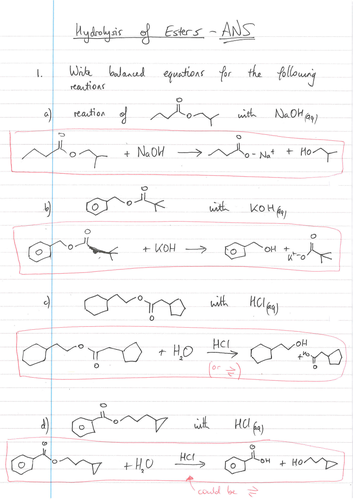 Hydrolysis of Esters - ANS
1. Write balanced equations for the following
reactions
a) reaction of with NaOH(aq)
+ NaOH → O-Na+ + HO
b) with KOH(aq)
+ KOH → OH + K+-O
c) with HCl(aq)
+ H2O HCl → OH + HO
(or ⇌)
d) with HCl(aq)
+ H2O HCl → OH + HO
could be ⇌